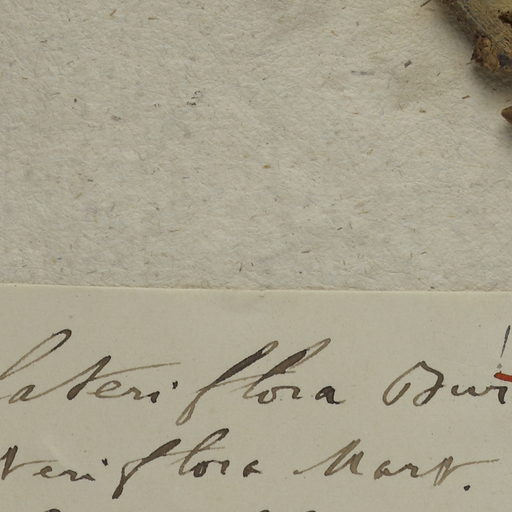 lateriflora Bur
teriflora Mart.